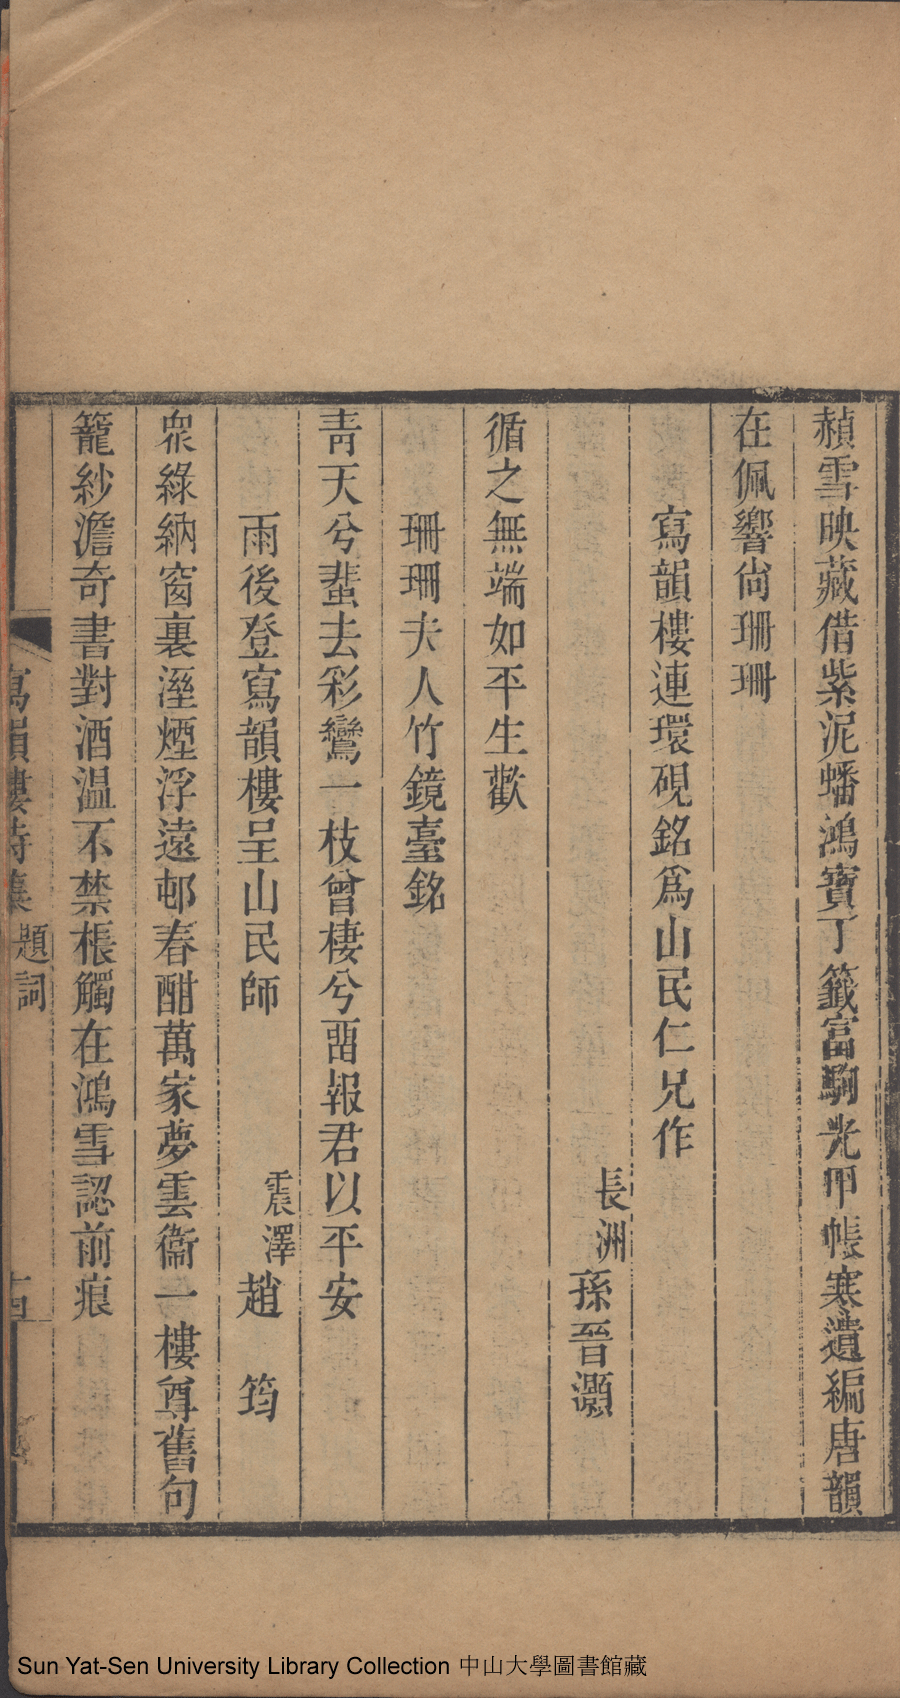 赬雪映藏借紫泥蟠鴻寶丁籤富駒光甲帳寒遺編唐韻
在佩響尙珊珊
寫韻樓連環硯銘爲山民仁兄作
長洲孫晉灝
循之無端如平生歡
珊珊夫人竹鏡臺銘
靑天兮蜚去彩鸞一枝曾棲兮畱報君以平安
雨後登寫韻樓呈山民師
震澤趙筠
眾綠納窗裏溼煙浮遠邨春酣萬家夢雲衞一樓尊舊句
籠紗澹奇書對酒温不禁棖觸在鴻雪認前痕
寫韻樓詩集 題詞 十四
Sun Yat-Sen University Library Collection 中山大學圖書館藏